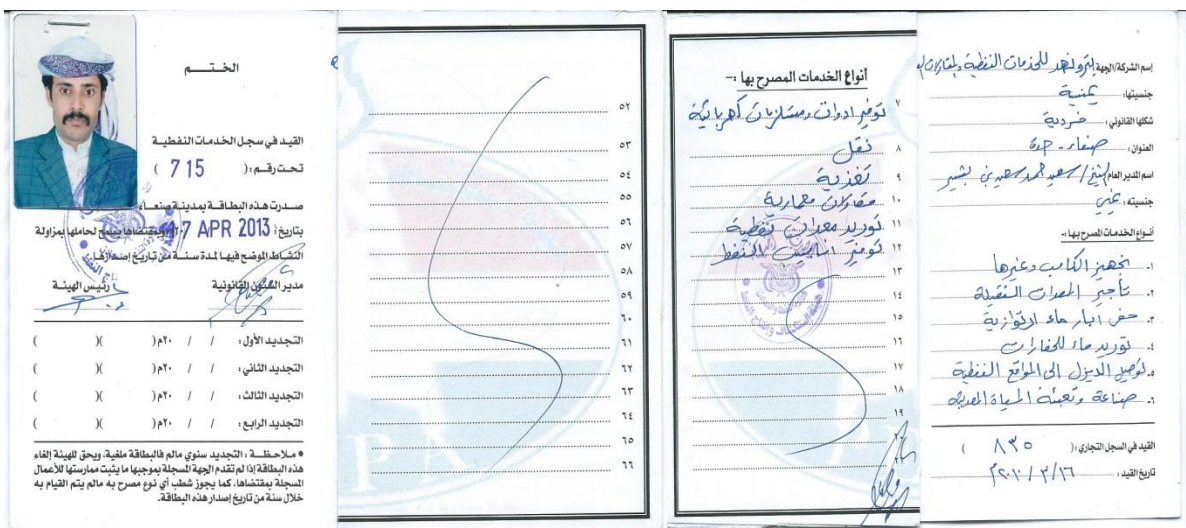 إسم الشركة/الجهة: بترونهد للخدمات النفطية والمقاولات
جنسيتها: يمنية
شكلها القانوني: فردية
العنوان: صنعاء - حدة
اسم المدير العام: الشيخ / سعيد احمد سعيد بن بشير
جنسيته: يمني
أنواع الخدمات المصرح بها :-
١. تجهيز الكامب وغيرها
٢. تأجير المعدات الثقيلة
٣. حفر ابار ماء ارتوازية
٤. توريد ماء للحفارات
٥. توصيل الديزل الى المواقع النفطية
٦. صناعة وتعبئة المياة المعدنية
القيد في السجل التجاري: ( ٨٣٥ )
تاريخ القيد: ٢٠١٠/٣/١٦م
أنواع الخدمات المصرح بها :-
٧ توفير ادوات ومستلزمات كهربائية
٨ نقل
٩ تغذية
١٠ مقاولات معمارية
١١ توريد معدات نفطية
١٢ توفير انابيب النفط
١٣
١٤
١٥
١٦
١٧
١٨
١٩
٥٢
٥٣
٥٤
٥٥
٥٦
٥٧
٥٨
٥٩
٦٠
٦١
٦٢
٦٣
٦٤
٦٥
٦٦
PA
الختــم
القيد في سجل الخدمات النفطية
تحت رقم: ( 715 )
صدرت هذه البطاقة بمدينة صنعاء
بتاريخ: 17 APR 2013 وبمقتضاها يسمح لحاملها بمزاولة
النشاط الموضح فيها لمدة سنة من تاريخ إصدارها.
مدير الشئون القانونية رئيس الهيئة
التجديد الأول: / / ٢٠م ( )( )
التجديد الثاني: / / ٢٠م ( )( )
التجديد الثالث: / / ٢٠م ( )( )
التجديد الرابع: / / ٢٠م ( )( )
• ملاحظــة : التجديد سنوي مالم فالبطاقة ملغية، ويحق للهيئة إلغاء
هذه البطاقة إذا لم تقدم الجهة المسجلة بموجبها ما يثبت ممارستها للأعمال
المسجلة بمقتضاها، كما يجوز شطب أي نوع مصرح به مالم يتم القيام به
خلال سنة من تاريخ إصدار هذه البطاقة.